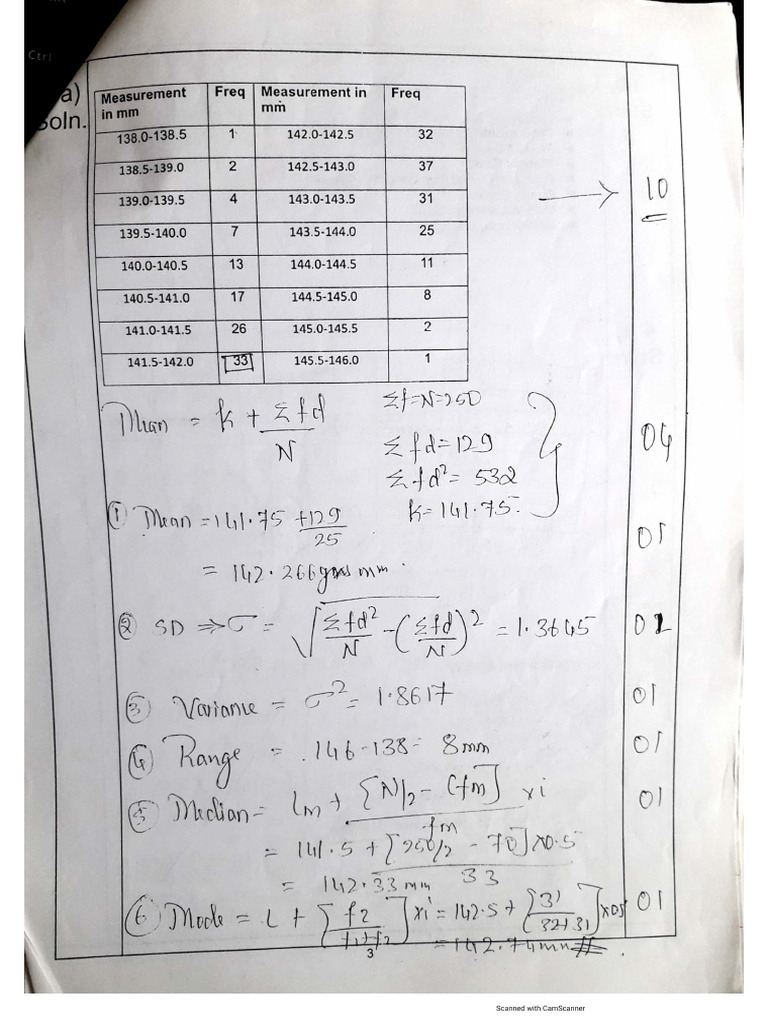 Ctrl
a)
Soln.
Measurement in mm Freq Measurement in mm Freq
138.0-138.5 1 142.0-142.5 32
138.5-139.0 2 142.5-143.0 37
139.0-139.5 4 143.0-143.5 31
139.5-140.0 7 143.5-144.0 25
140.0-140.5 13 144.0-144.5 11
140.5-141.0 17 144.5-145.0 8
141.0-141.5 26 145.0-145.5 2
141.5-142.0 33 145.5-146.0 1
→ 10
Mean = k + Σfd / N
Σf=N=250
Σfd=129
Σfd²= 532
k=141.75.
04
① Mean = 141.75 + 129 / 25 01
= 142.266 mm.
② SD ⇒ σ = √(Σfd²/N - (Σfd/N)²) = 1.3645 01
③ Variance = σ² = 1.8617 01
④ Range = 146-138= 8mm 01
⑤ Median = Lm + [N/2 - Cfm] / fm xi 01
= 141.5 + [250/2 - 70] x0.5 / 33
= 142.33 mm
⑥ Mode = L + [f2 / f1+f2] xi = 142.5 + [31 / 32+31] x0.5 01
= 142.74mm
3
Scanned with CamScanner